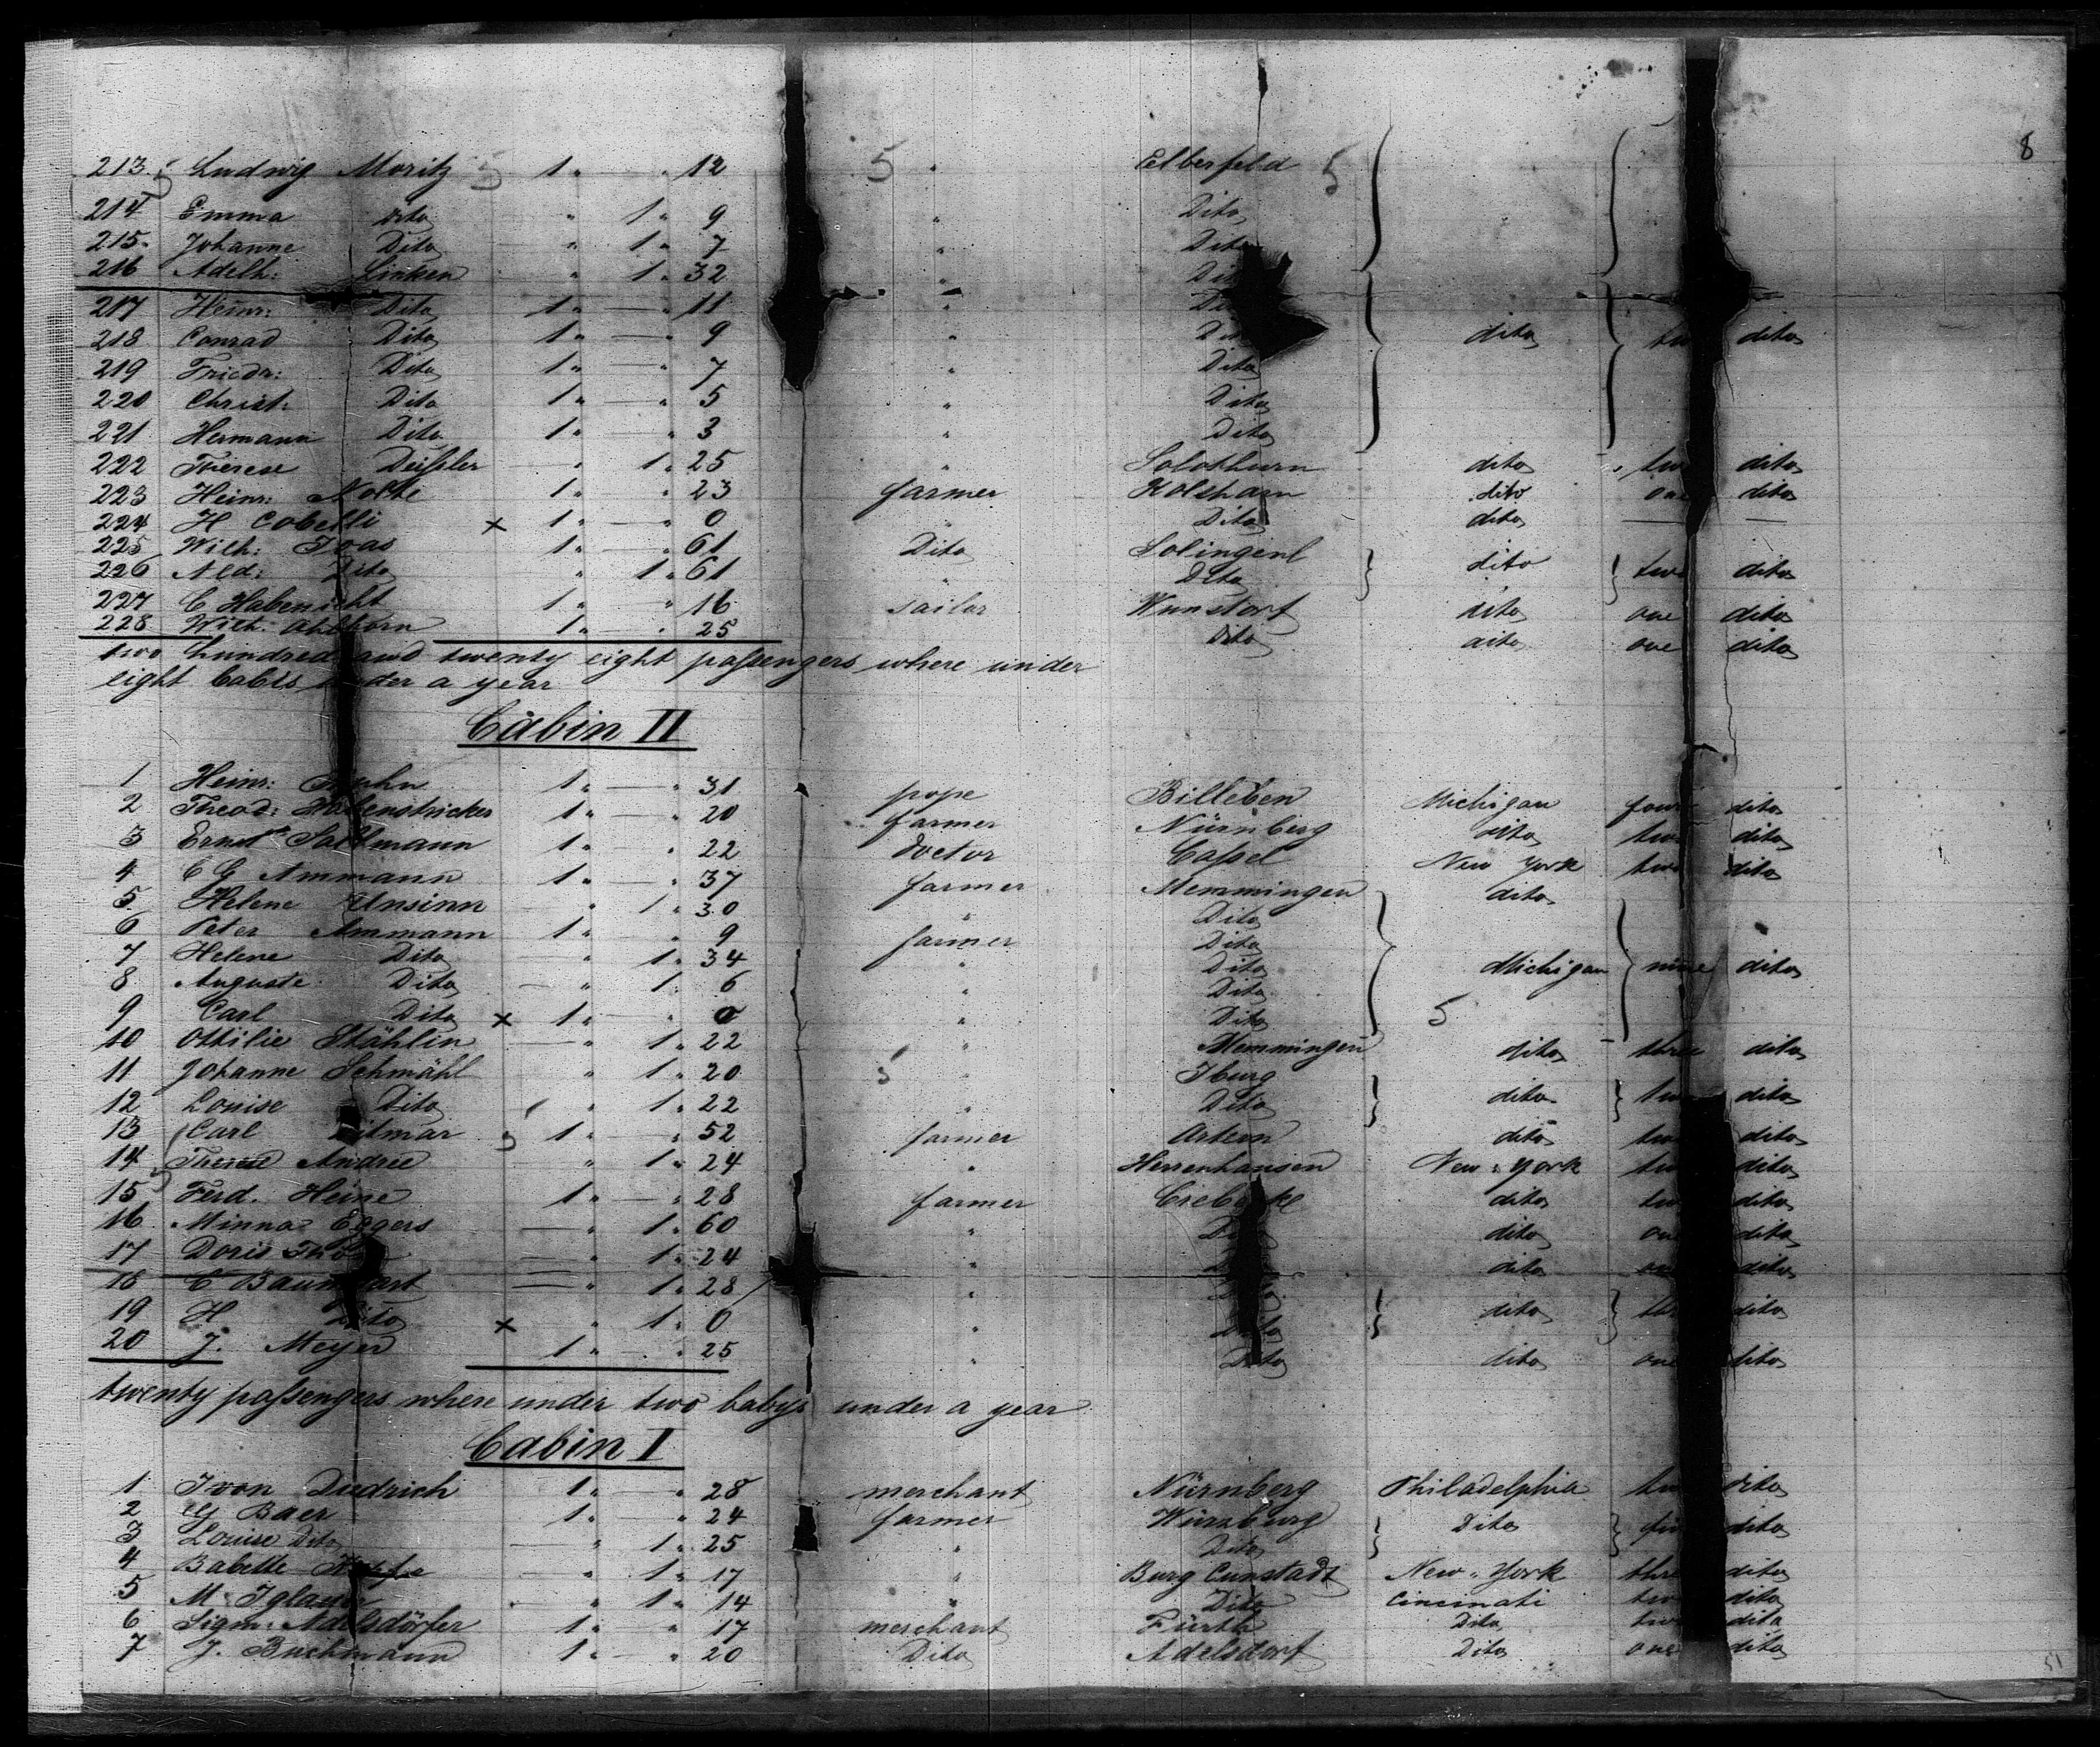 8
213. Ludwig Moritz 1 " " 12 " Elberfeld
214 Emma dito " 1 " 9 " Dito
215. Johanne Dito " 1 " 7 " Dito
216 Adelh: Linken " 1 " 32 "
217 Heinr: Dito 1 " — " 11 "
218 Conrad Dito 1 " — " 9 " dito dito
219 Friedr: Dito 1 " — " 7 " Dito
220 Christ: Dito 1 " — " 5 " Dito
221 Hermann Dito 1 " " 3 " Dito
222 Therese — " 1 " 25 " Solothurn dito two dito
223 Heinr: Nolte 1 " — " 23 farmer Kolshorn dito one dito
224 H Cobelli × 1 " — " 0 " Dito dito — —
225 Wilh: 1 " — " 61 Dito dito two dito
226 Ald: Dito " 1 " 61 " Dito
227 C Habenicht 1 " " 16 sailor Wunstorf dito one dito
228 Wilh: Ahlborn 1 " " 25 Dito dito one dito
two hundred and twenty eight passengers where under
eight babis under a year
Cabin II
1 Heinr: 1 " — " 31 pope Billeben Michigan four dito
2 Theod: 1 " " 20 farmer Nürnberg dito two dito
3 Ernst Saltmann 1 " " 22 doctor Cassel New York two dito
4 C G Ammann 1 " — " 37 farmer Memmingen dito
5. Helene Unsinn " 1 " 30 " Dito
6 Peter Ammann 1 " " 9 farmer Dito
7 Helene Dito — " 1 " 34 " Dito Michigan nine dito
8 Auguste Dito — " 1 " 6 " Dito
9 Carl Dito × 1 " " 0 " Dito
10 Ottilie Stählin — " 1 " 22 " Memmingen dito three dito
11 Johanne Schmähl " 1 " 20 " Iburg
12 Louise Dito " 1 " 22 " Dito dito two dito
13 Carl Ditmar 1 " — " 52 farmer Artern dito two dito
14 Therese Andree " 1 " 24 " Herrenhausen New York two dito
15 Ferd. Heine 1 " — " 28 farmer dito two dito
16 Minna Eggers — " 1 " 60 " dito one dito
17 Doris — " 1 " 24 " dito one dito
18 C Baumgart — " 1 " 28 "
19 H Dito × " 1 " 0 " dito three dito
20 J. Meyer 1 " " 25 " Dito dito one dito
twenty passengers where under two babys under a year
Cabin I
1 Ivon Diedrich 1 " — " 28 merchant Nürnberg Philadelphia two dito
2 G Baer 1 " — " 24 farmer Würzburg Dito dito
3 Louise Dito — " 1 " 25 " Dito
4 Babette — " 1 " 17 " Burg Cunstadt New York three dito
5 M. Iglauer " 1 " 14 " Dito Cincinati two dito
6 Sigm: Adelsdörfer 1 " " 17 merchant Fürth Dito two dito
7 J. Buchmann 1 " — " 20 Dito Adelsdorf Dito one dito
51